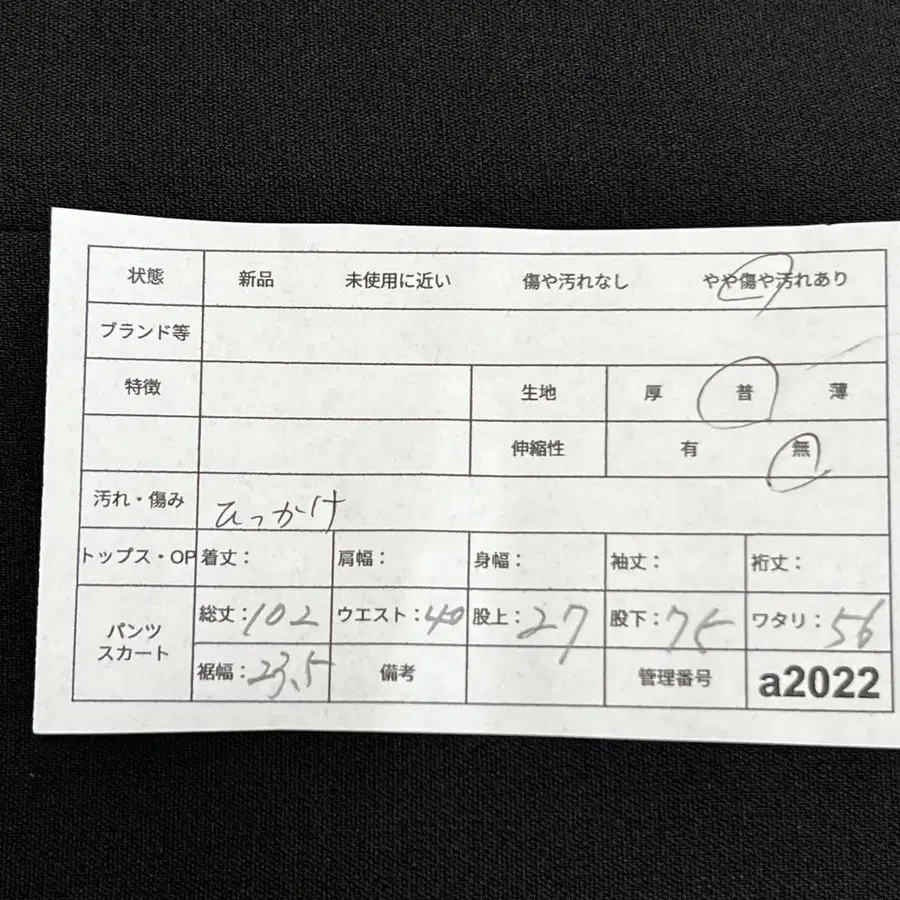 状態 新品 未使用に近い 傷や汚れなし やや傷や汚れあり
ブランド等
特徴 生地 厚 普 薄
伸縮性 有 無
汚れ・傷み ひっかけ
トップス・OP 着丈: 肩幅: 身幅: 袖丈: 裄丈:
パンツ スカート 総丈:102 ウエスト:40 股上:27 股下:75 ワタリ:56
裾幅:23.5 備考 管理番号 a2022